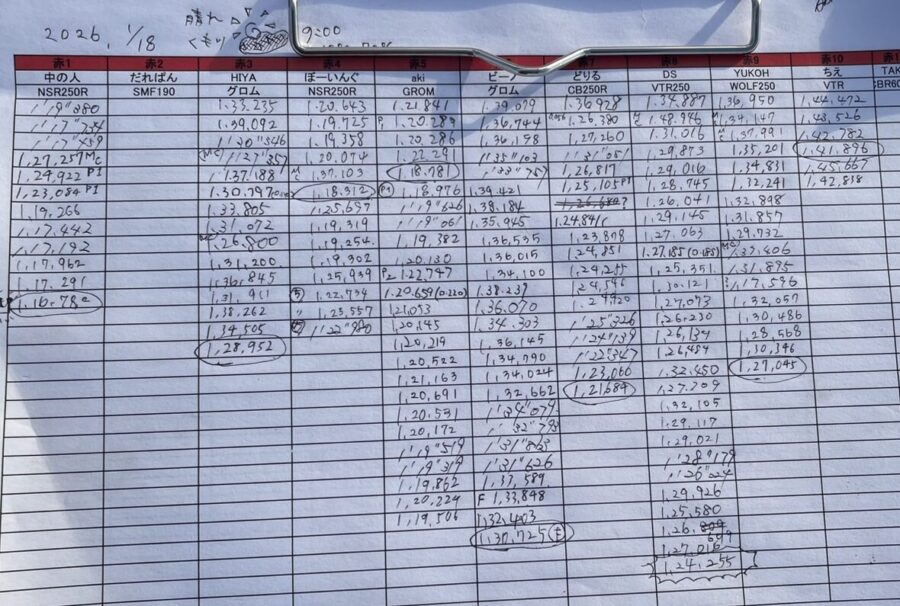 2026, 1/18 晴れ くもり 9:00
赤1 赤2 赤3 赤4 赤5 赤7 赤8 赤9 赤10 赤11
中の人 だればん HIYA ぼーいんぐ aki ビーノ どりる DS YUKOH ちえ TAK
NSR250R SMF190 グロム NSR250R GROM グロム CB250R VTR250 WOLF250 VTR CBR60
1'19"380 1.33.235 1.20.643 1.21.841 1.39.079 1.36.928 1.34.887 1.36.950 1.44.472
1.39.092 1.19.725 P1 1.20.289 1.36.744 1.26.380 1.48.946 1.34.147 1.43.526
1'30"346 1.19.358 1.20.286 1.36.198 1.27.260 1.31.016 1.37.991 1.42.782
1,27,257 MC (MC) 1'27"357 1.20.074 1.22.291 1'35"103 1'31"051 1.29.873 1.35,201 1.41.896
1,24,922 P1 1'37.188 1.37.103 1.18.781 1.26,817 1.29,016 1.34,831 1.45.667
1,23,084 P1 1.30.797 1.18.312 P1 1.18.976 1.39.421 1.25,105 P1 1.28,745 1.32.241 1.42,838
1,19,266 1.33.805 1.25.697 1'19"626 1.38.184 1.26,041 1.32,898
1,17,442 1,31,072 1,19,319 1'19"061 1.35.945 1.24.841 1.29,145 1.31.857
1,17,192 1.26.800 1,19,254 1.19,382 1.36,535 1.23,808 1.27,063 1.29,732
1,17,962 1,31,200 1,19,302 1,20,130 1.36,015 1.24,851 1.27.185 (0.185) 1.37,406
1,17,291 1,36,845 1,25,939 P2 1.22,747 1,34,100 1.24,255 1,25,351 1,31,895
1.16.782 1,31,911 1,22,734 1.20.659 (0.220) 1.38.239 1,24,596 1,30,121 1'17,596
1,38,262 1,23,557 1,21,053 1.36,070 1,27,073 1,32,057
1,34,505 1'22"980 1,20,145 1.34.303 1'25"326 1,26,230 1,30,486
1,28,952 1,20,219 1,36,145 1'24"139 1,26,134 1,28,568
1,20,522 1,34,790 1'22"347 1,26,484 1,30,346
1,21,163 1,34,024 1,23,060 1,32,450 1,27,045
1,20,691 1,32,662 1,21,684 1,27,209
1,20,531 1'34"079 1,32,105
1,20,172 1'32"793 1,29,117
1'19"519 1'31"863 1,29,021
1'19"319 1'31"626 1'28"179
1,19,862 1,31,589 1'26"224
1,20,224 F 1,33,848 1,29,926
1,19,506 1,32,403 1,25,580
1,30,725 1,26,699
1,27,016
1,24,255